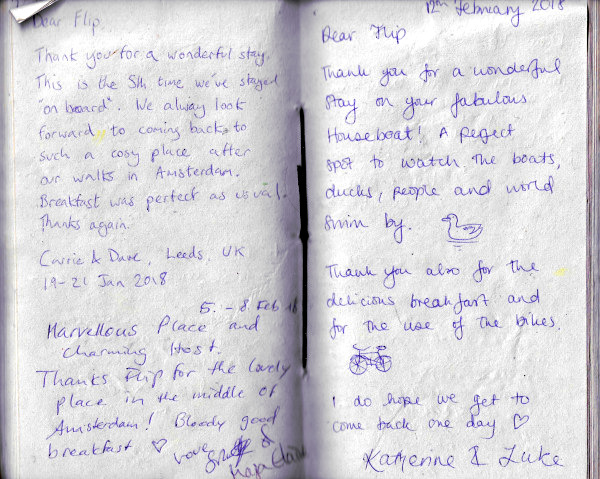 Dear Flip,
Thank you for a wonderful stay.
This is the 5th time we've stayed
"on board". We alway look
forward to coming back to
such a cosy place after
our walks in Amsterdam.
Breakfast was perfect as usual.
Thanks again.
Carrie & Dave, Leeds, UK
19-21 Jan 2018
5. - 8. Feb 18
Marvellous Place and
charming Host.
Thanks Flip for the lovely
place in the middle of
Amsterdam! Bloody good
breakfast ♡ Love
12th February 2018
Dear Flip
Thank you for a wonderful
stay on your fabulous
Houseboat! A perfect
spot to watch the boats,
ducks, people and world
swim by.
Thank you also for the
delicious breakfast and
for the use of the bikes.
I do hope we get to
come back one day ♡
Katherine & Luke